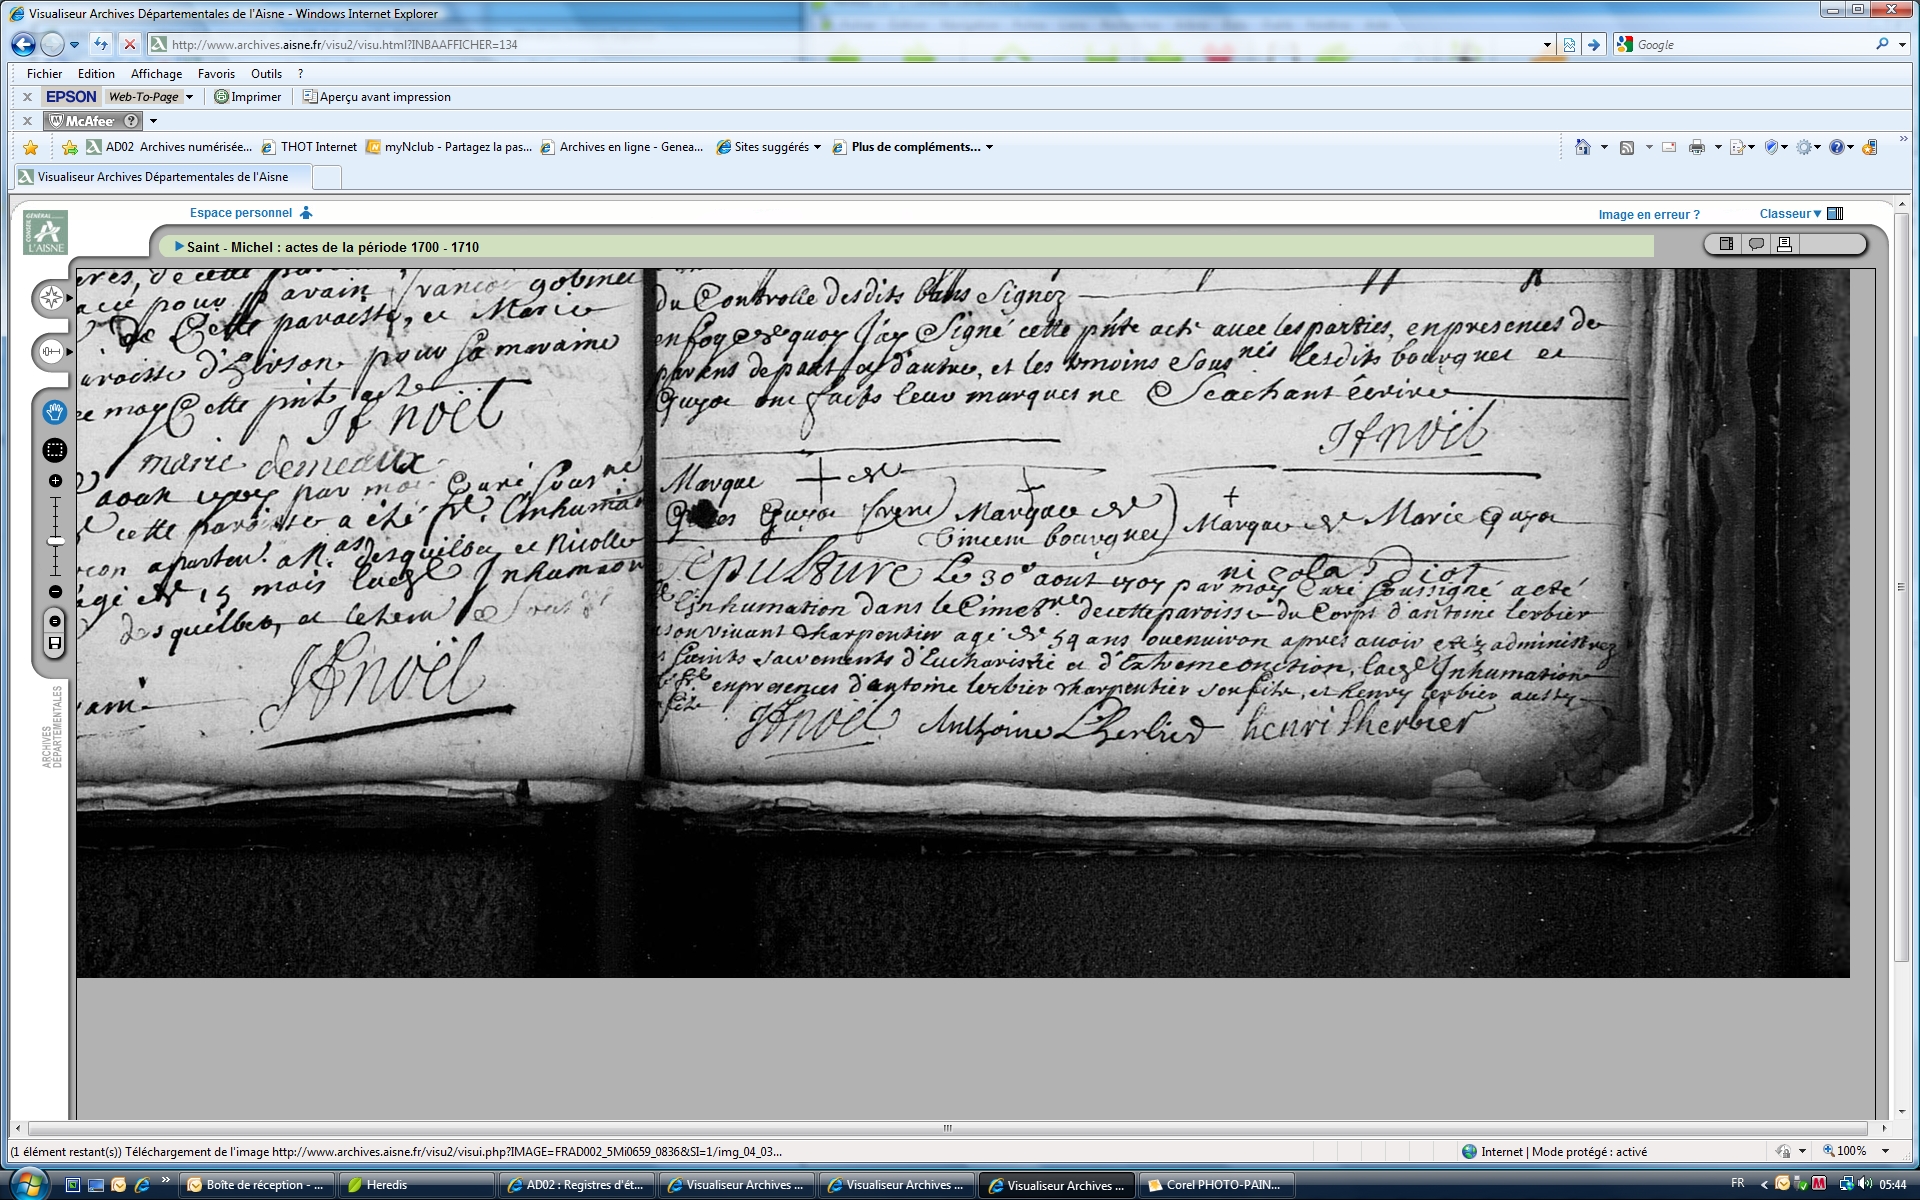 Visualiseur Archives Départementales de l'Aisne - Windows Internet Explorer
http://www.archives.aisne.fr/visu2/visu.html?INBAAFFICHER=134
Google
Fichier Edition Affichage Favoris Outils ?
x EPSON Web-To-Page Imprimer Aperçu avant impression
x McAfee ?
AD02 Archives numérisée... THOT Internet myNclub - Partagez la pas... Archives en ligne - Genea... Sites suggérés Plus de compléments...
Visualiseur Archives Départementales de l'Aisne
Espace personnel
Image en erreur ? Classeur
CONSEIL GÉNÉRAL L'AISNE
Saint - Michel : actes de la période 1700 - 1710
ARCHIVES DÉPARTEMENTALES
de cette
pour parain francoi gobinet
De Cette paroisse, et Marie
d'hirson pour sa maraine
moy Cette pnt acte
JF NOËL
marie demeaux
aoust par moy Curé sous.né
cette paroisse a été
et Nicolle
15 mois Inhumaon
desquilbet, et
JF noël
du Controlle desdits bans Signez
en foy de quoy J'ay Signé cette pnte acte avec les parties, en presences de
parens de part et d'autre, et les temoins Sousnés lesdits bourguet et
Guyot ont faits leur marques ne Scachant écrire
JF NOËL
Marque de
Guyot frere Marque de
Vincent bourguet
Marque de Marie Guyot
nicola Diot
Sepulture Le 30e aout par moy Curé soussigné acté
L'inhumation dans le Cimetre de cette paroisse du Corps d'antoine lerbier
son vivant charpentier agé de 59 ans ou environ apres avoir administrez
Saints Sacrements d'Eucharistie et d'Extremeonction, Inhumation
en presences d'antoine lerbier charpentier son fils, et henry lerbier aussy
JF NOËL Anthoine Lherbier henri lherbier
(1 élément restant(s)) Téléchargement de l'image http://www.archives.aisne.fr/visu2/visui.php?IMAGE=FRAD002_5Mi0659_0836&SI=1/img_04_03...
Internet | Mode protégé : activé
100%
Boîte de réception - ... Heredis AD02 : Registres d'ét... Visualiseur Archives ... Visualiseur Archives ... Visualiseur Archives ... Corel PHOTO-PAIN...
FR 05:44